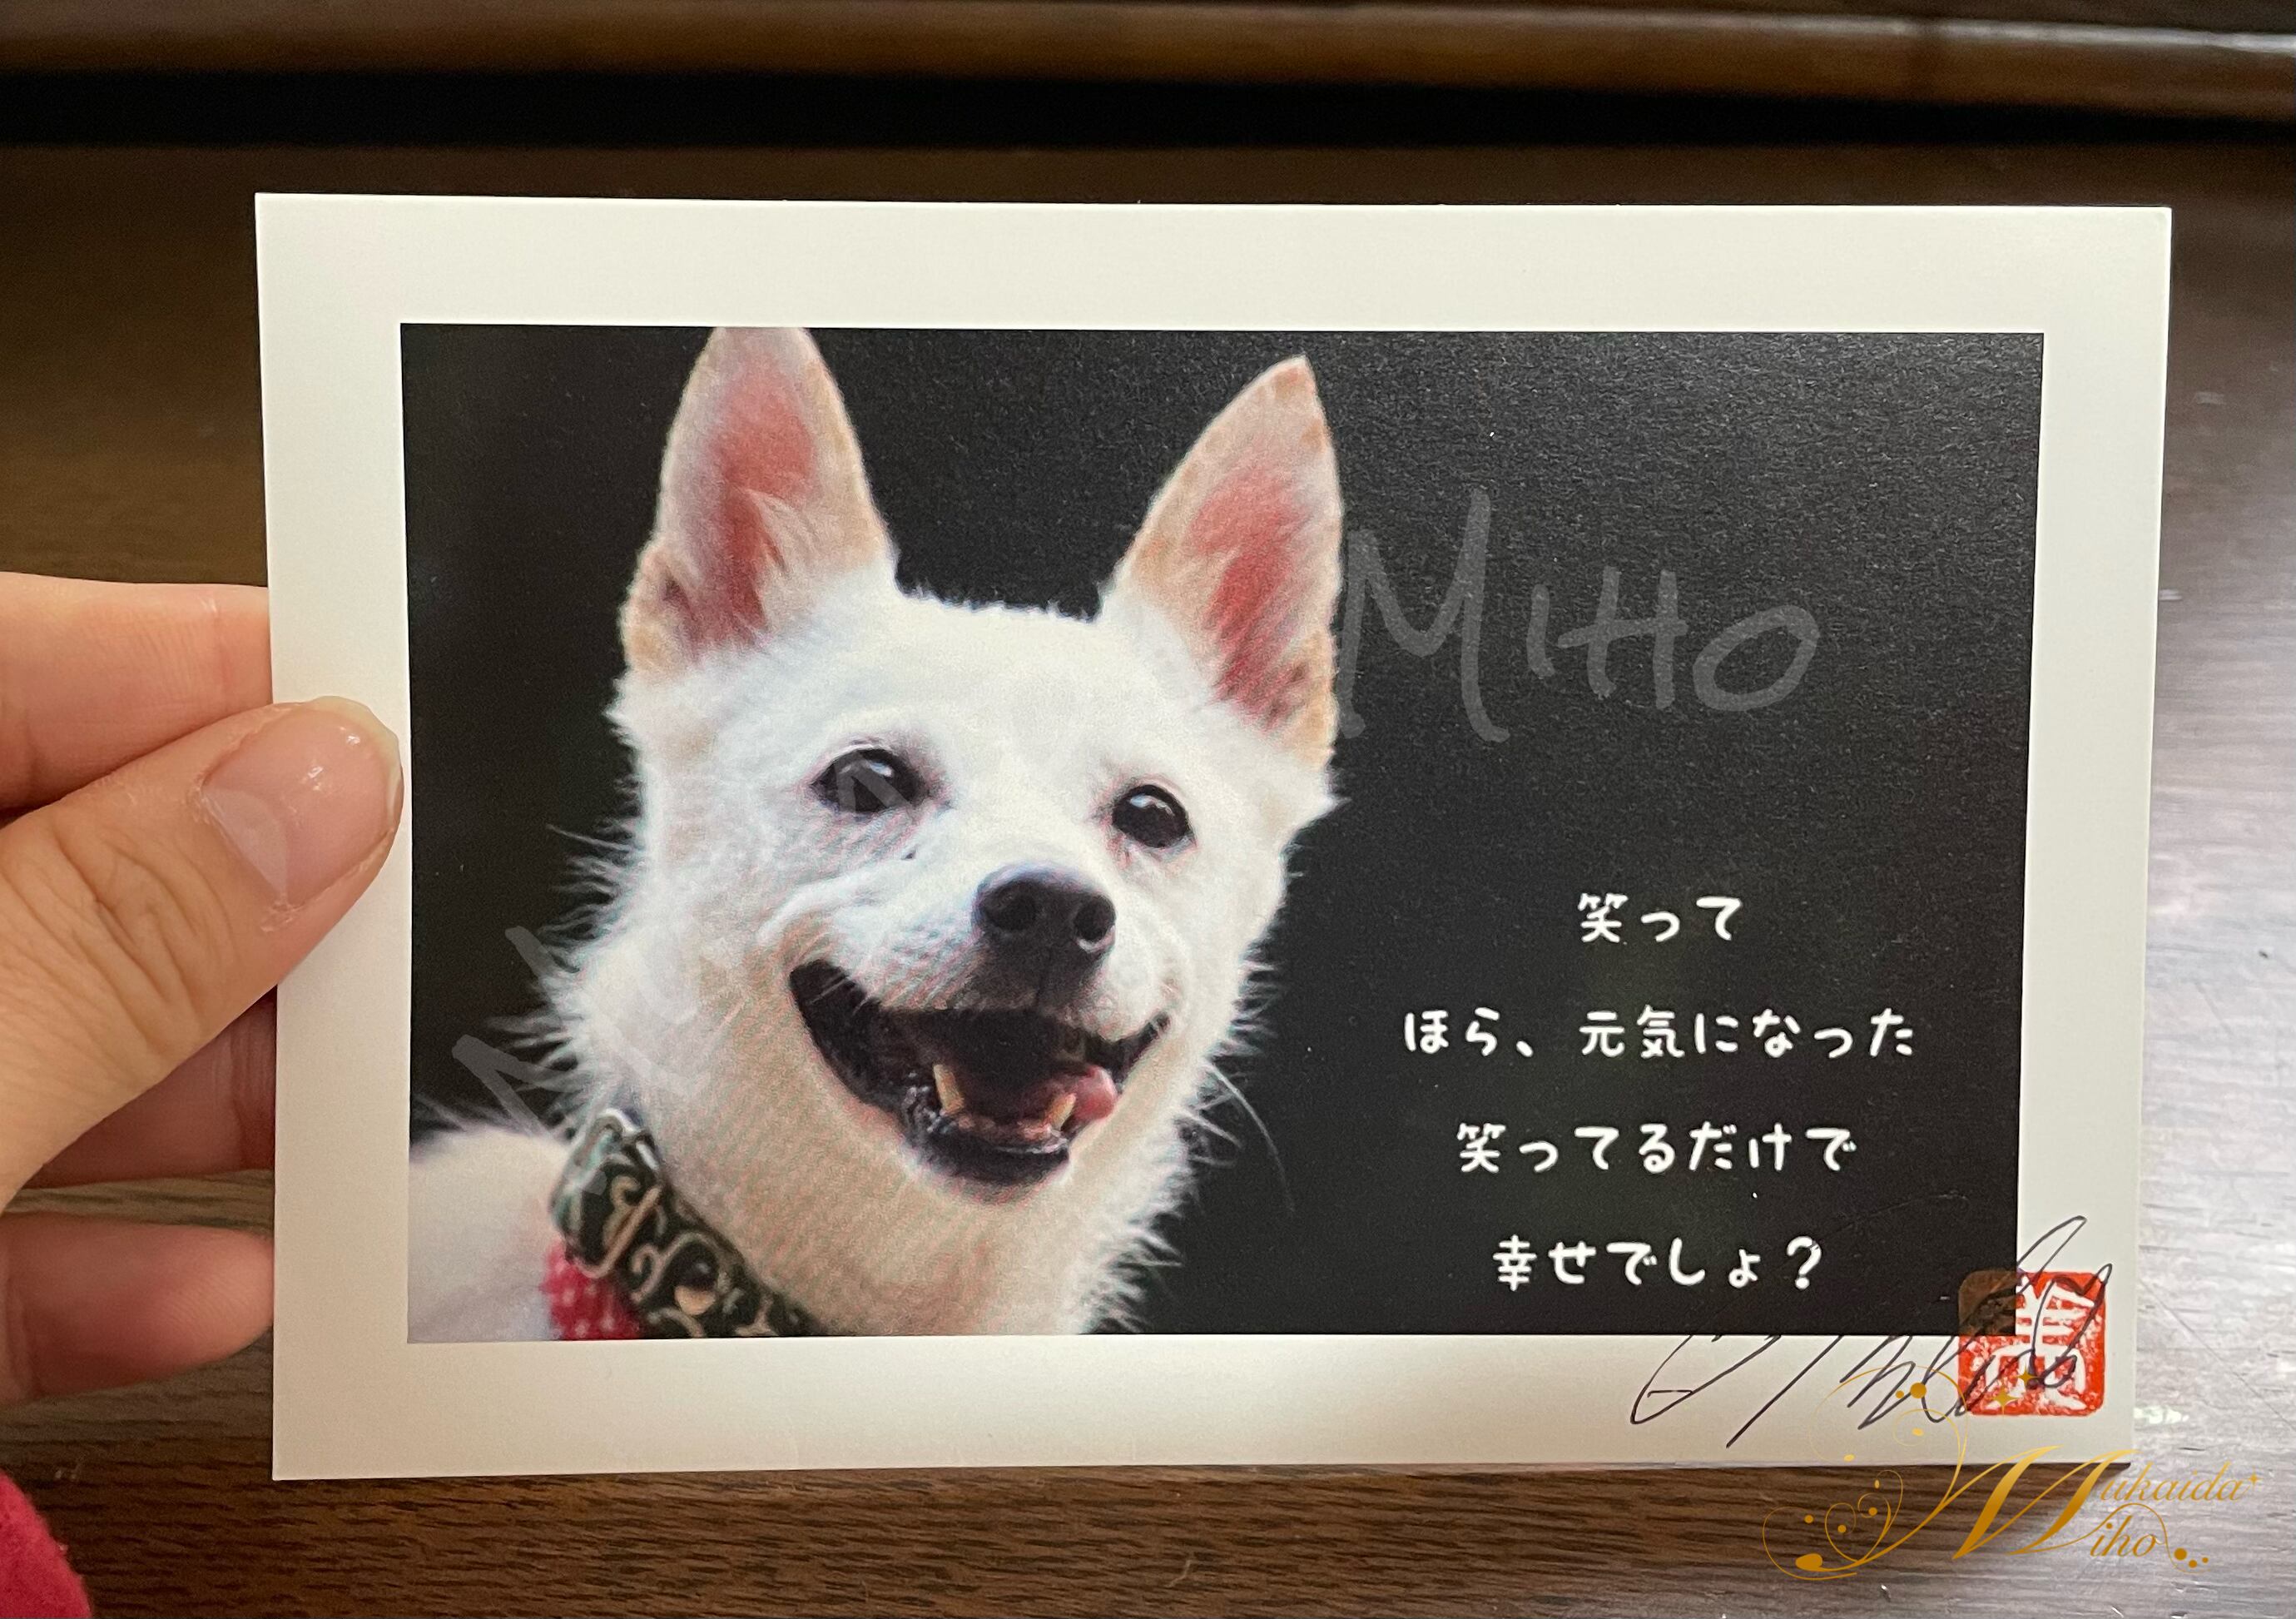 MIHO
笑って
ほら、元気になった
笑ってるだけで
幸せでしょ？
美
Mukaida
Miho